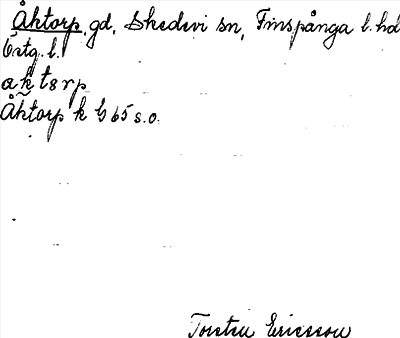 Åktorp gd, Skedevi sn, Finspånga l. hd
Östg. l.
a k tsrp
Åktorp k G 65 s.o.
Torsten Ericsson